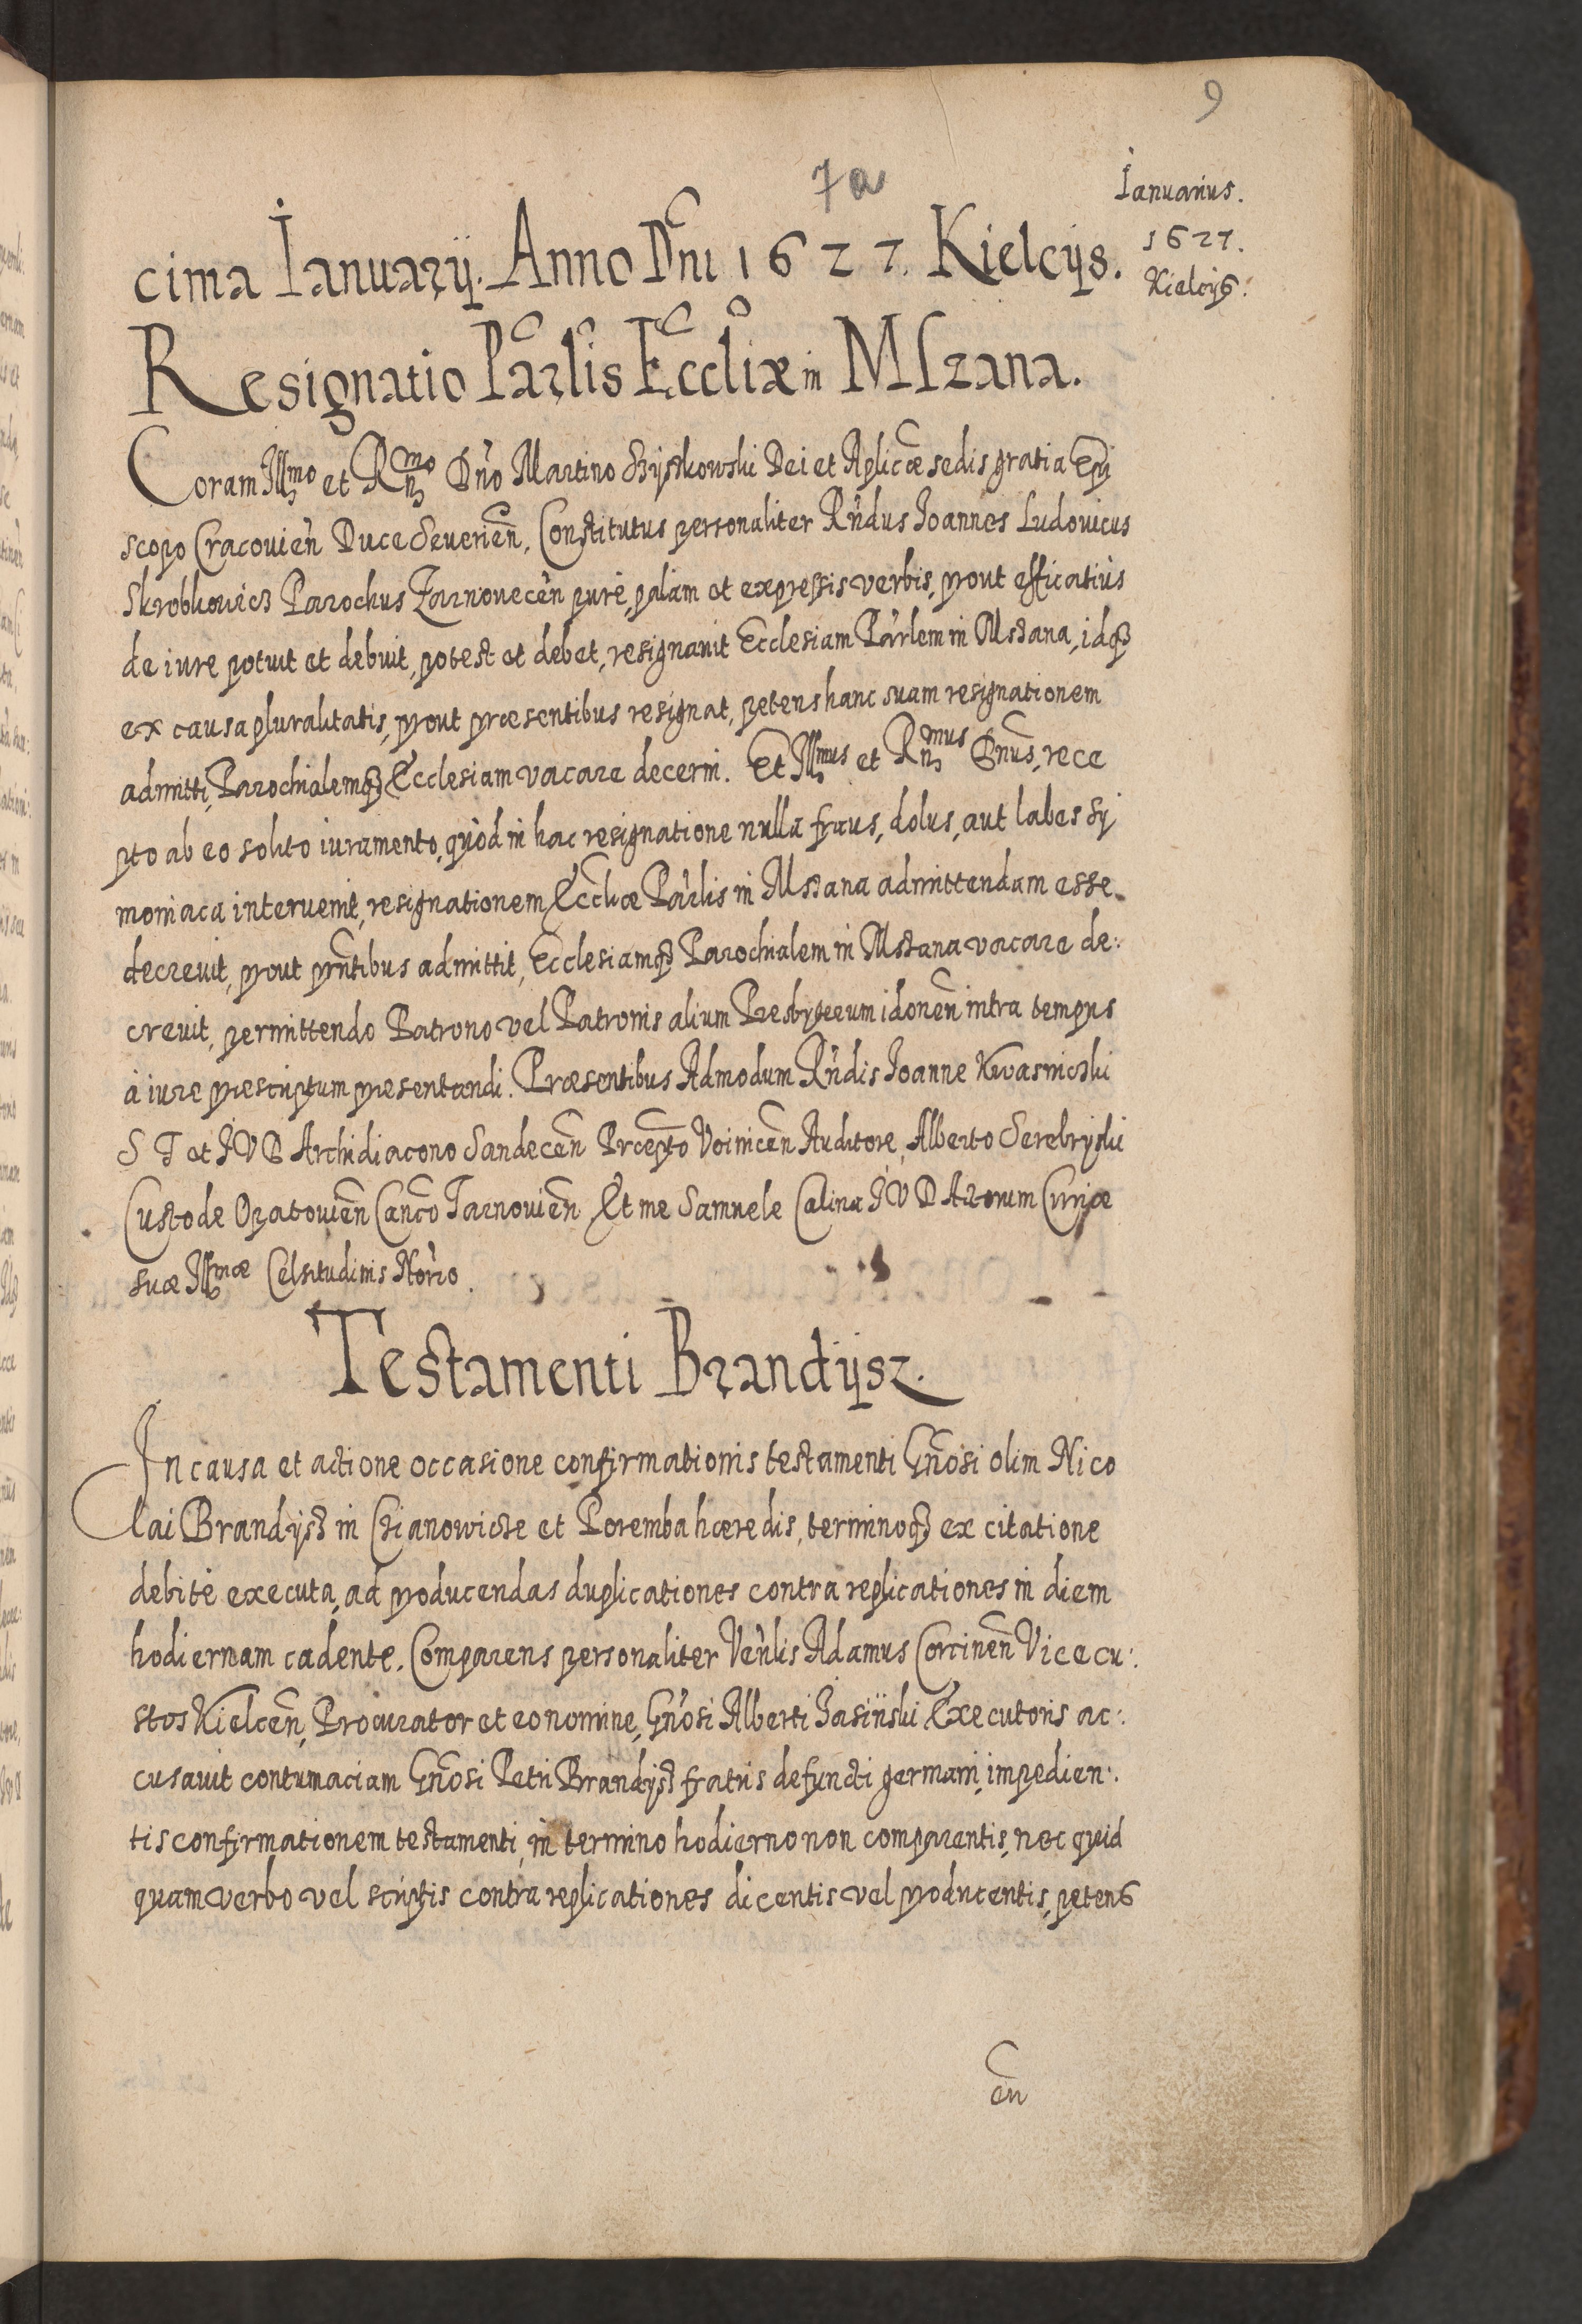 9
7a
Ianuarius.
1627.
Kielcijs.
cima Ianuarij. Anno Dni 1627. Kielcijs.
Resignatio Parlis Eccliæ in Mszana.
Coram Illmo et Rmo Dno Martino Szyszkowski Dei et Aplicæ sedis gratia Epi
scopo Cracouien Duce Seuerien, Constitutus personaliter Rndus Ioannes Ludovicus
Skrobkowicz Parochus Zarnouecen purè, palam et expressis verbis, prout efficatiùs
de iure potuit et debuit, potest et debet, resignauit Ecclesiam Parlem in Mszana, idqz
ex causa pluralitatis, prout præsentibus resignat, petens hanc suam resignationem
admitti, Parochialemqz Ecclesiam vacare decerni. Et Illmus et Rmus Dnus, rece
pto ab eo solito iuramento, quòd in hac resignatione nulla fraus, dolus, aut labes sy
moniaca interuenit, resignationem Eccliæ Parlis in Mszana admittendam esse
decreuit, prout pntibus admittit, Ecclesiamqz Parochialem in Mszana vacare de:
creuit, permittendo Patrono vel Patronis alium Presbyterum idonen intra tempus
à iure præscriptum præsentandi. Præsentibus Admodum Rndis Ioanne Kwasnicski
S T et I V D Archidiacono Sandecen Prcepto Voinicen Auditore, Alberto Serebryski
Custode Opatouien Canco Tarnouien Et me Samuele Calina I V D Actorum Curiæ
suæ Illmæ Celsitudinis Norio.
Testamenti Brandijsz.
In causa et actione occasione confirmationis testamenti Gnosi olim Nico
lai Brandijsz in Chianowicze et Poremba hæredis, terminoqz ex citatione
debitè executa, ad producendas duplicationes contra replicationes in diem
hodiernam cadente. Comparens personaliter Venlis Adamus Corcinen Vicecu:
stos Kielcen, Procurator et eo nomine, Gnosi Alberti Iasiński Executoris ac:
cusauit contumaciam Gnosi Petri Brandijsz fratris defuncti germani, impedien:
tis confirmationem testamenti, in termino hodierno non comparentis, nec quid
quam verbo vel scriptis contra replicationes dicentis vel producentis, petens
en